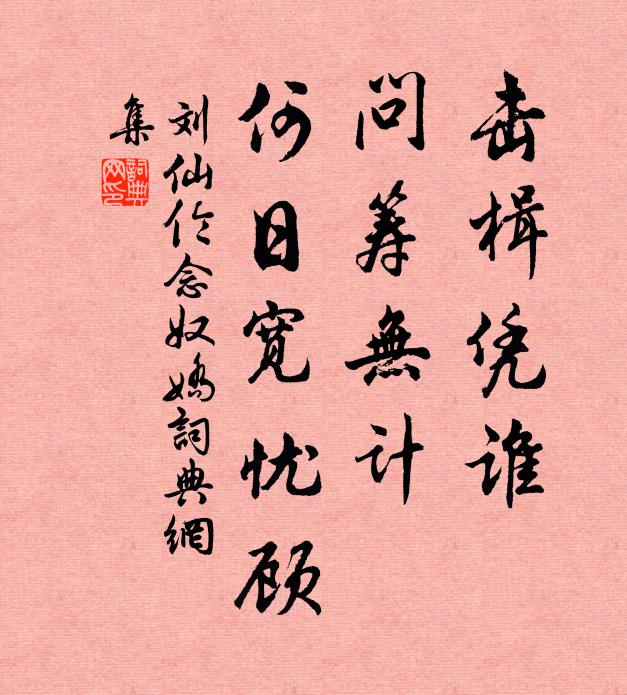 击楫凭谁
问筹無计
何日宽忧顾
刘仙伦念奴娇詞典網
集
詞典网印